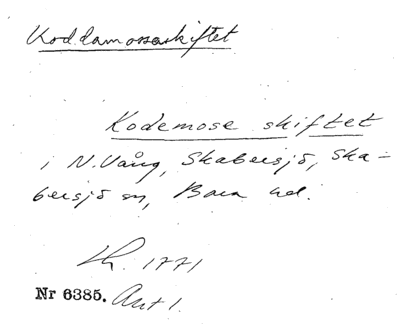 Koddamosseskiftet
Kodemose skiftet
i N. Vång, Skabersjö, Ska=
bersjö sn, Bara hd.
Lh. 1771
Nr 6385. Akt 1.